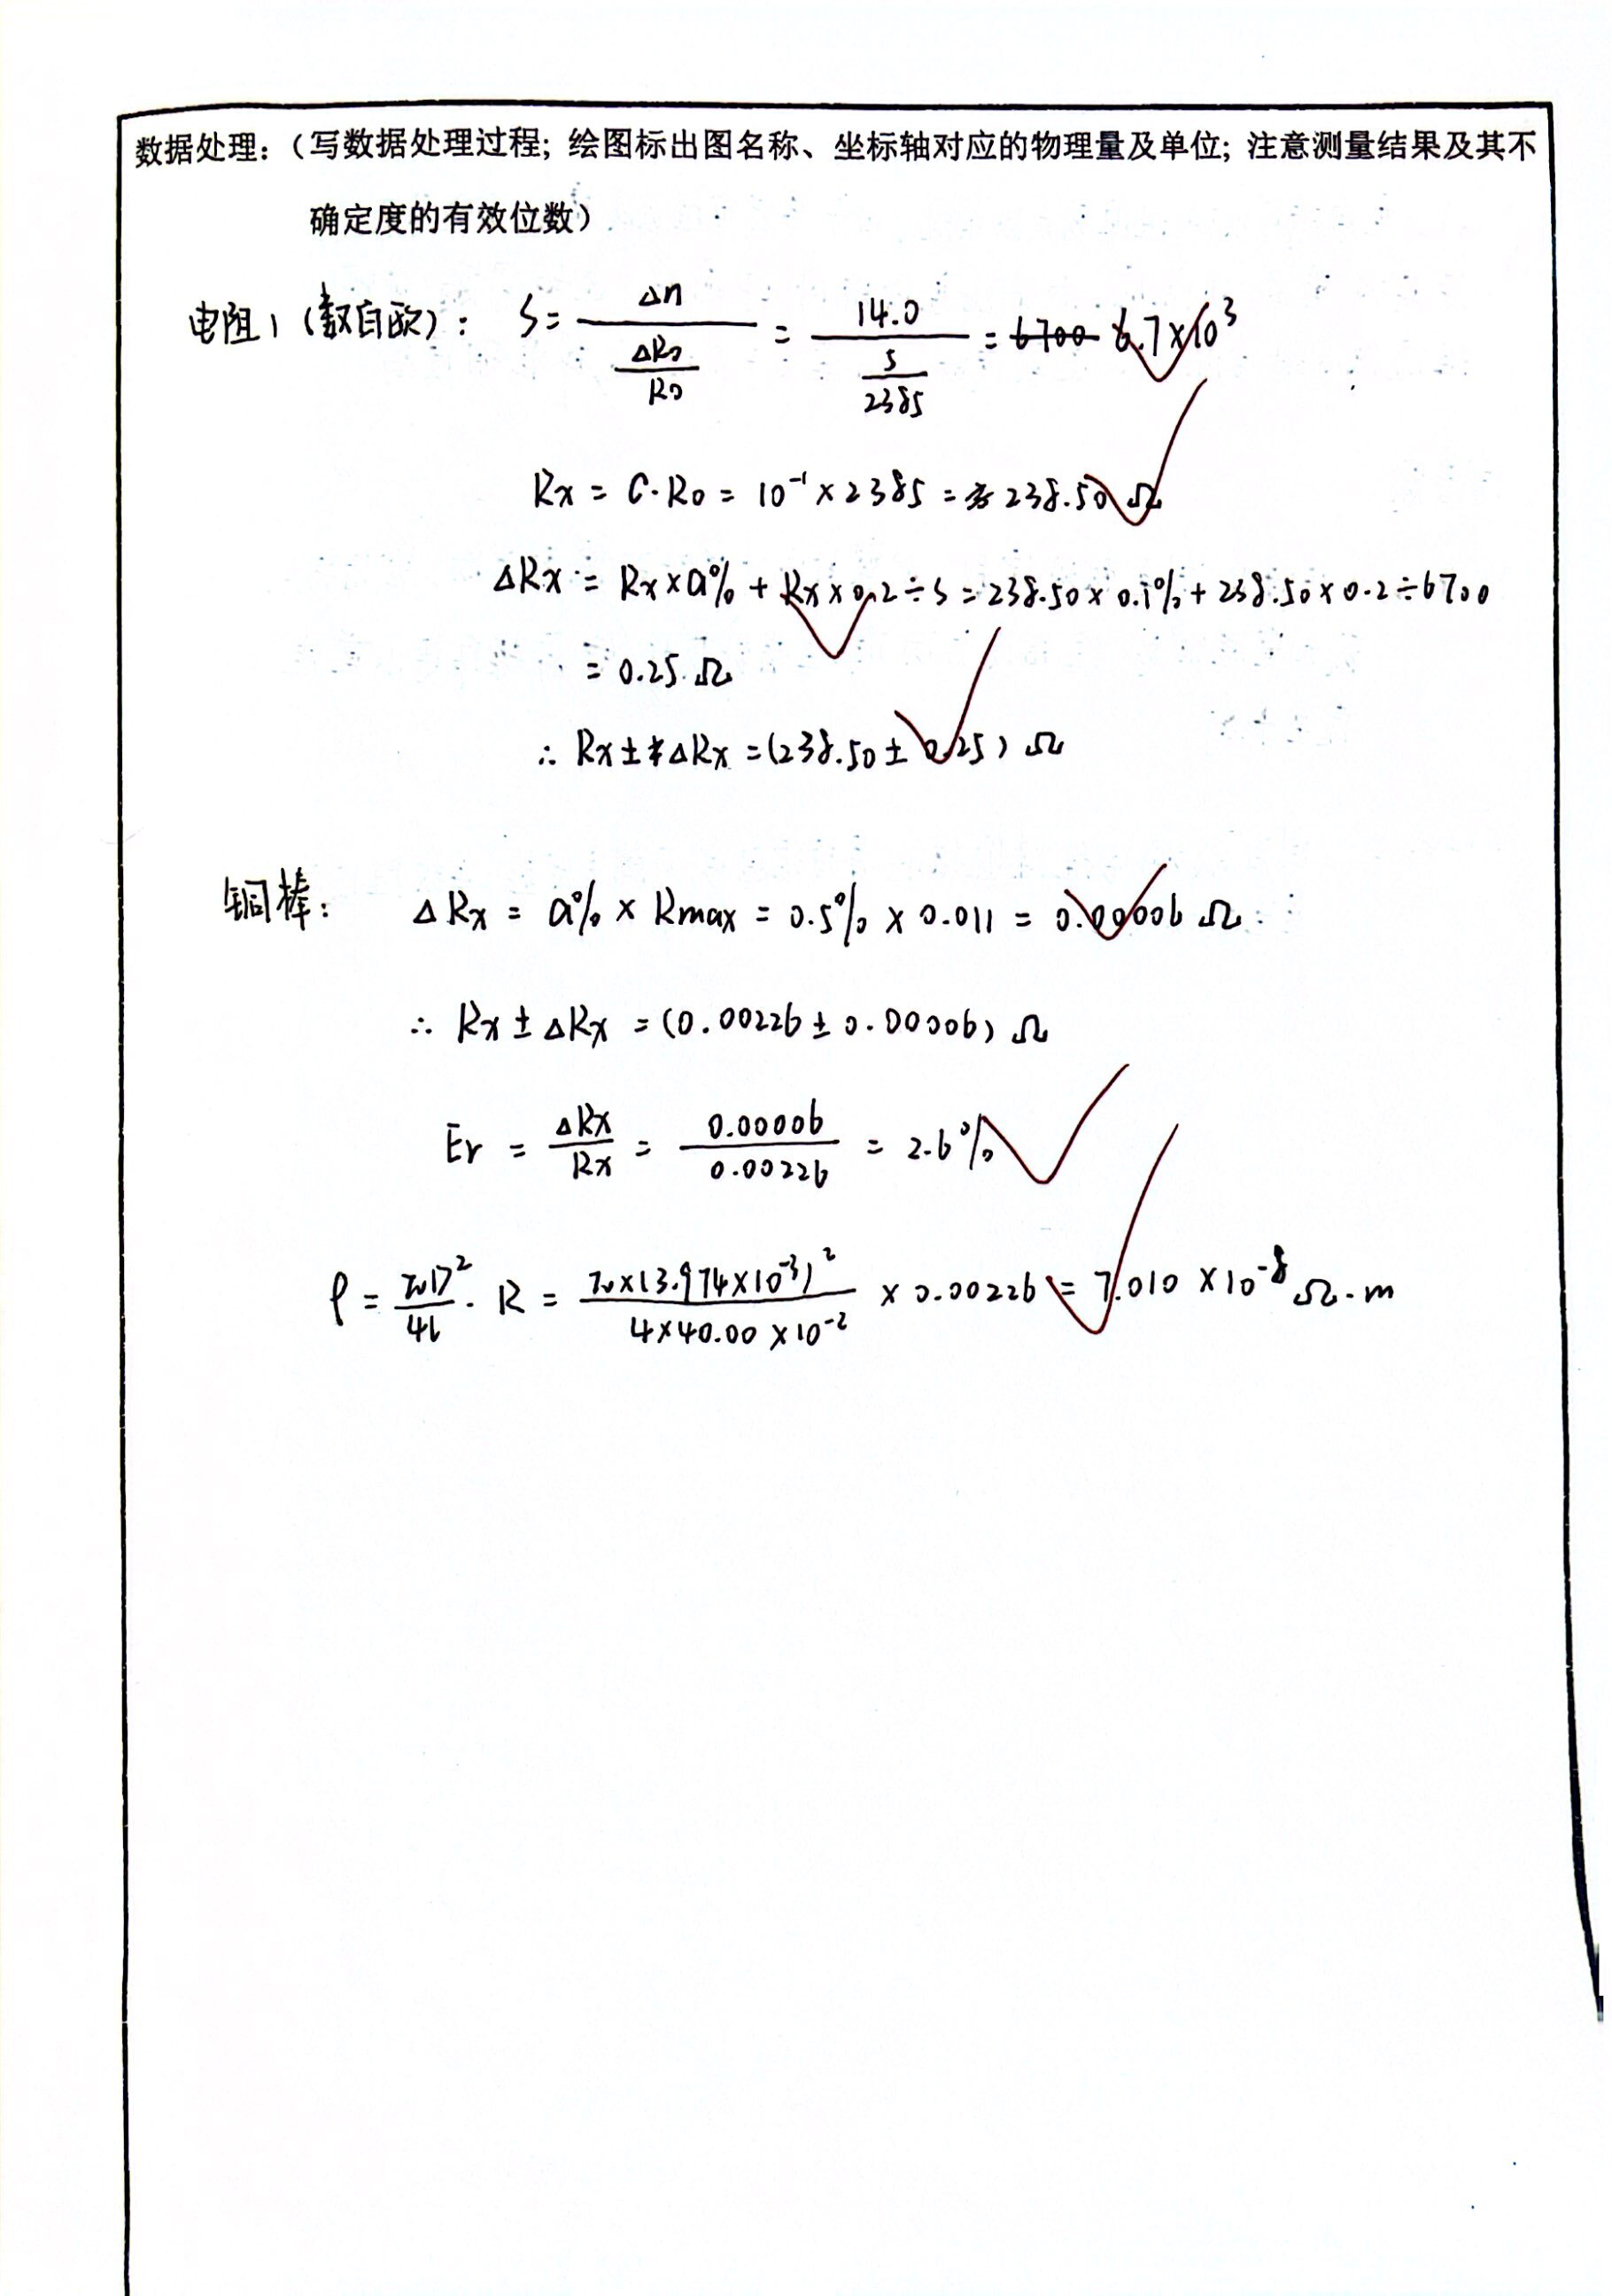 数据处理：（写数据处理过程；绘图标出图名称、坐标轴对应的物理量及单位；注意测量结果及其不
确定度的有效位数）
电阻1（数百欧）： S = Δn / (ΔR₀/R₀) = 14.0 / (5/2385) = 6700 6.7×10³
Rx = C·R₀ = 10⁻¹ × 2385 = 238.50 Ω
ΔRx = Rx×a% + Rx×0.2÷S = 238.50×0.1% + 238.50×0.2÷6700
= 0.25 Ω
∴ Rx ± ΔRx = (238.50 ± 0.25) Ω
铜棒： ΔRx = a% × Rmax = 0.5% × 0.011 = 0.00006 Ω
∴ Rx ± ΔRx = (0.00226 ± 0.00006) Ω
Er = ΔRx/Rx = 0.00006/0.00226 = 2.6%
ρ = πD²/4L · R = π×(3.974×10⁻³)² / 4×40.00×10⁻² × 0.00226 = 7.010 ×10⁻⁸ Ω·m